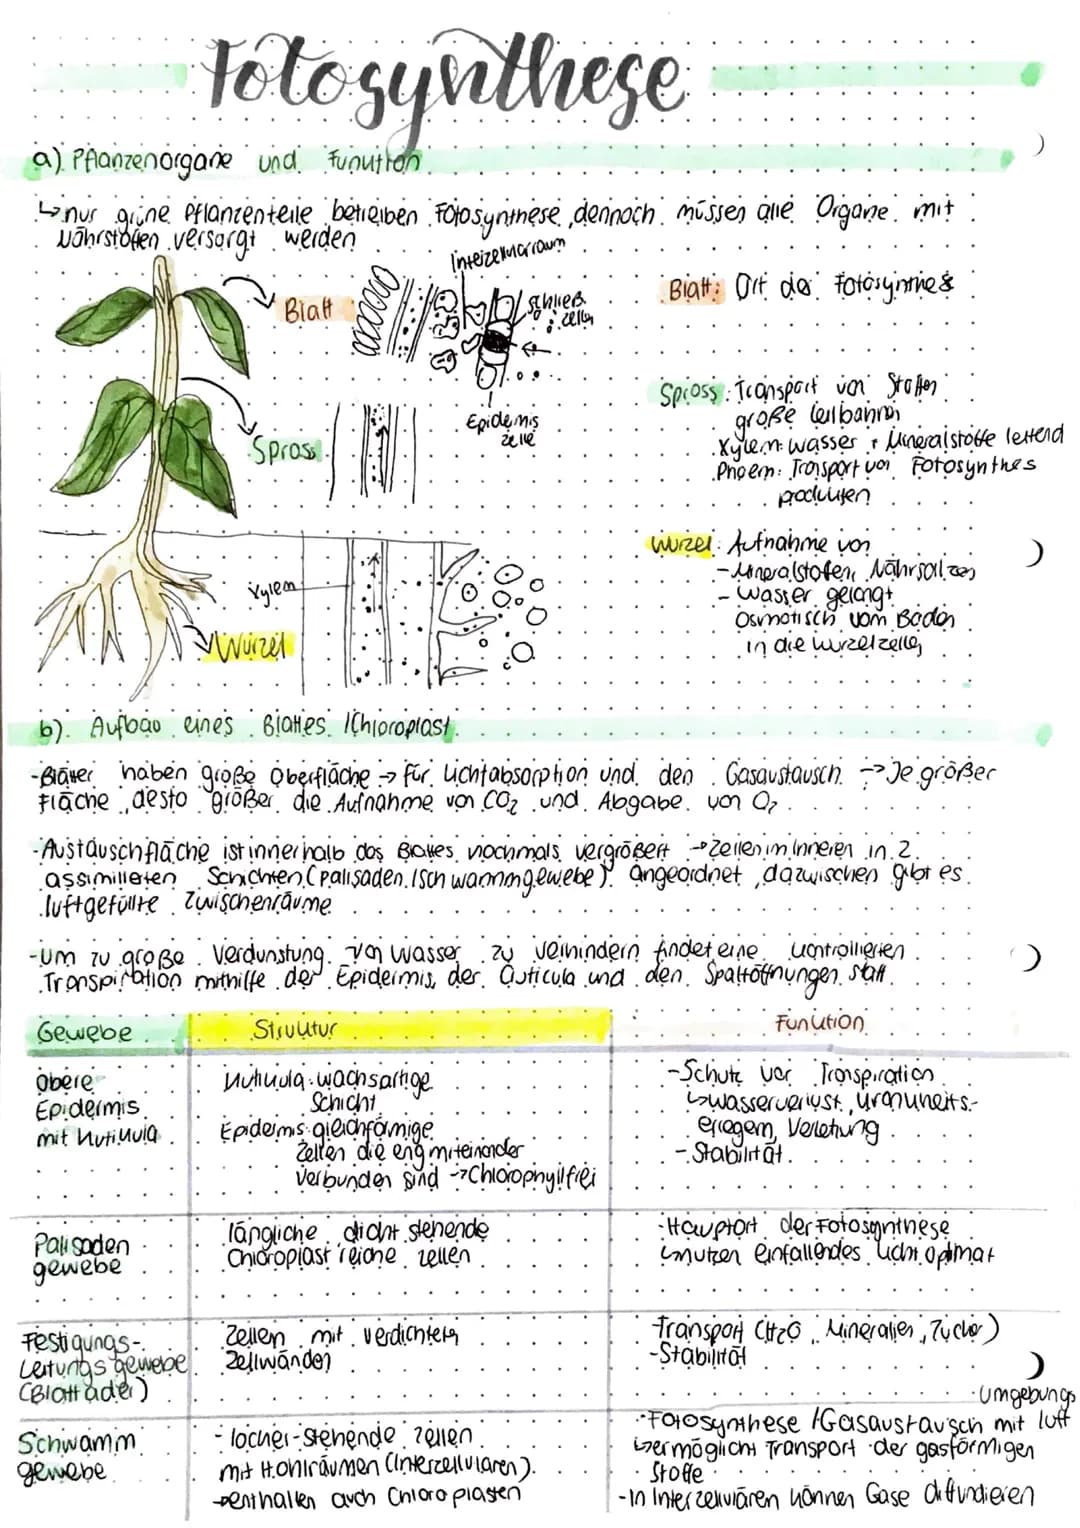 Fotosynthese
a) Pflanzenorgane und Funktion
↳ nur grüne Pflanzenteile betreiben Fotosynthese, dennoch müssen alle Organe mit
Nährstoffen versorgt werden
Interzellularraum
Blatt
Schließ
zellen
Epidermis
zelle
Blatt: Ort der Fotosynthese
Spross
Spross: Transport von Stoffen
große Leitbahnen
Xylem: Wasser + Mineralstoffe leitend
Phoem: Transport von Fotosynthes
produkten
Xylem
Wurzel
Wurzel: Aufnahme von
- Mineralstoffen, Nährsalzen
- Wasser gelangt
osmotisch vom Boden
in die Wurzelzelle
b). Aufbau eines Blattes /Chloroplast
- Blätter haben große Oberfläche → für Lichtabsorption und den Gasaustausch → Je größer
Fläche, desto größer die Aufnahme von CO₂ und Abgabe von O₂
- Austauschfläche ist innerhalb des Blattes nochmals vergrößert → Zellen im Inneren in 2
assimilierten Schichten (palisaden./Schwammgewebe) angeordnet, dazwischen gibt es
luftgefüllte Zwischenräume
- Um zu große Verdunstung von Wasser zu verhindern findet eine kontrollierten
Transpiration mithilfe der Epidermis, der Cuticula und den Spaltöffnungen statt.
Gewebe Struktur Funktion
Obere
Epidermis
mit Kutikula
Kutikula: wachsartige
Schicht
Epidermis: gleichförmige
Zellen die eng miteinander
verbunden sind → Chlorophyllfrei
- Schutz vor Transpiration
↳ Wasserverlust, Krankheits-
erregern, Verletzung
- Stabilität
Palisaden
gewebe
längliche dicht stehende
Chloroplast reiche Zellen
- Hauptort der Fotosynthese
↳ nutzen einfallendes Licht optimal
Festigungs-
Leitungsgewebe
(Blattader)
Zellen mit verdichteten
Zellwänden
Transport (H₂O, Mineralien, Zucker)
- Stabilität
Schwamm
gewebe
- locker-stehende Zellen
mit Hohlräumen (Interzellularen)
→ enthalten auch Chloroplasten
Umgebungs
- Fotosynthese /Gasaustausch mit luft
↳ ermöglicht Transport der gasförmigen
Stoffe
- In Interzellulären können Gase diffundieren